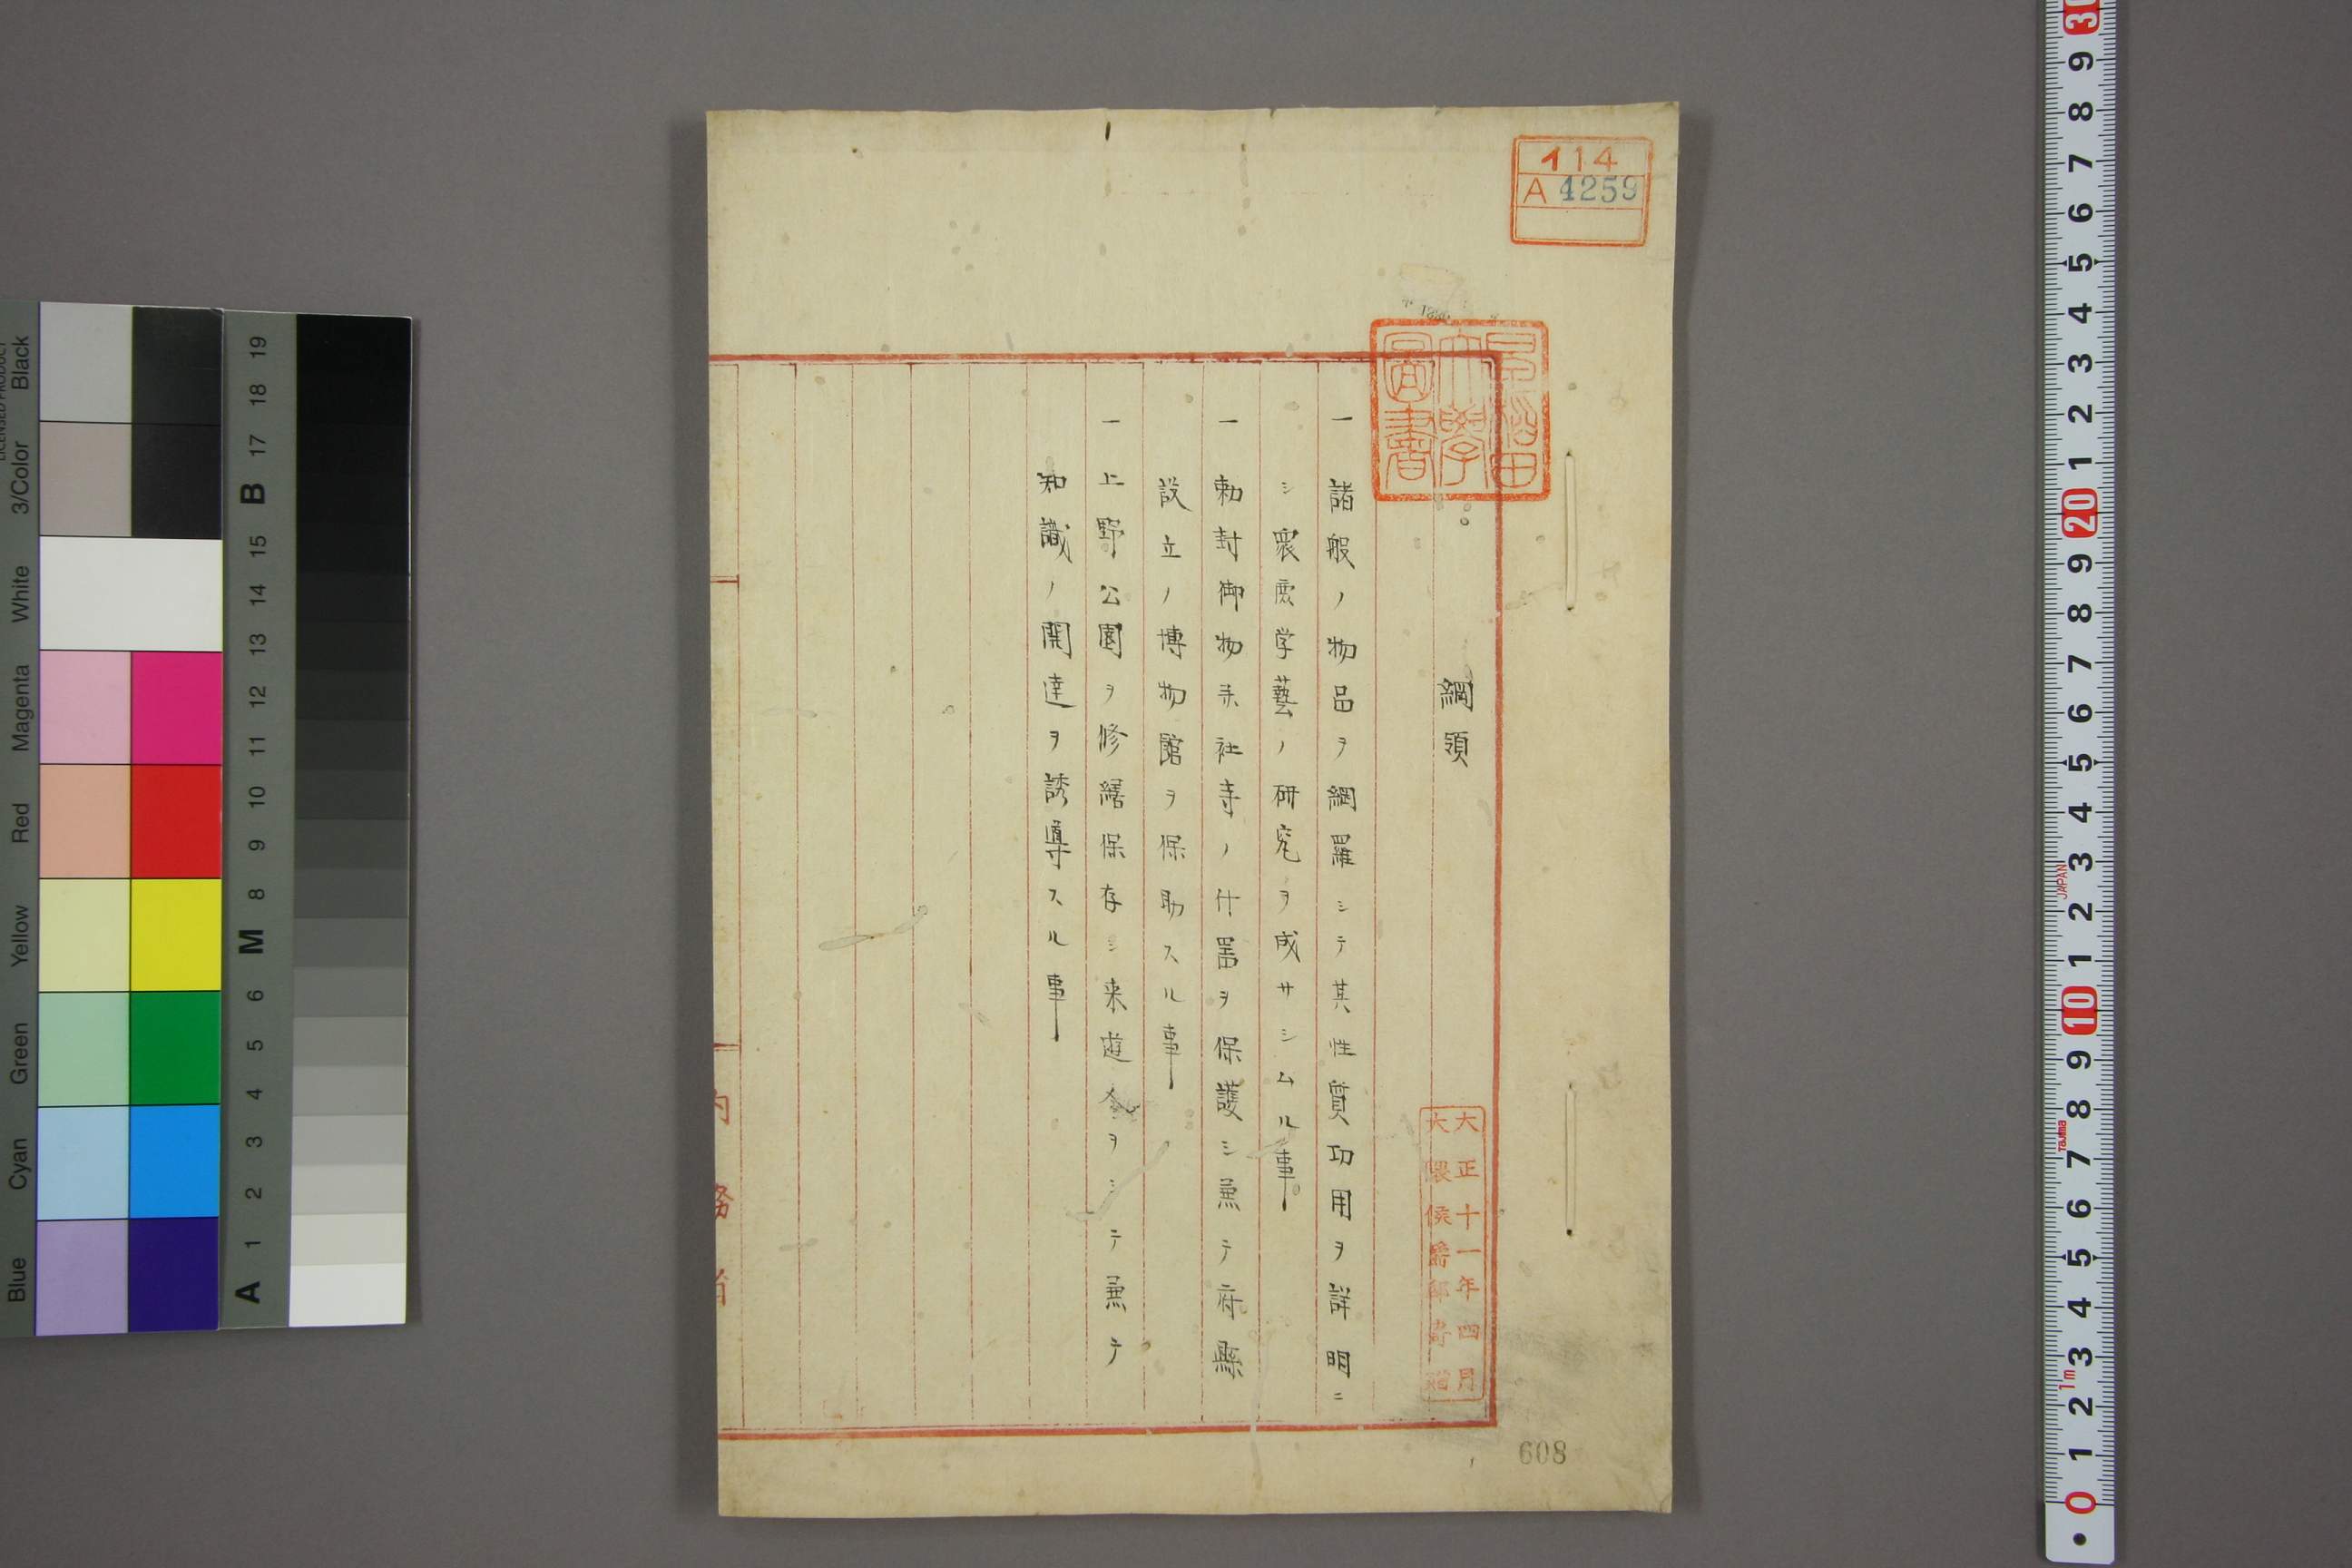 114
A 4259
早稲田
大學
圖書
綱領
大正十一年四月
大隈侯爵邸寄贈
一 諸般ノ物品ヲ網羅シテ其性質功用ヲ詳明ニ
シ衆庶学藝ノ研究ヲ成サシムル事
一 勅封御物并社寺ノ什器ヲ保護シ兼テ府縣
設立ノ博物館ヲ保助スル事
一 上野公園ヲ修繕保存シ来遊人ヲシテ兼テ
知識ノ開達ヲ誘導スル事
内務省
608
Black
3/Color
White
Magenta
Red
Yellow
Green
Cyan
Blue
19
18
B 17
15
14
13
12
11
10
9
8
M
6
5
4
3
2
1
A
30
9
8
7
6
5
4
3
2
1
20
9
8
7
6
5
4
3
2
1
10
9
8
7
6
5
4
3
2
1
0
JAPAN
Tajima
1m